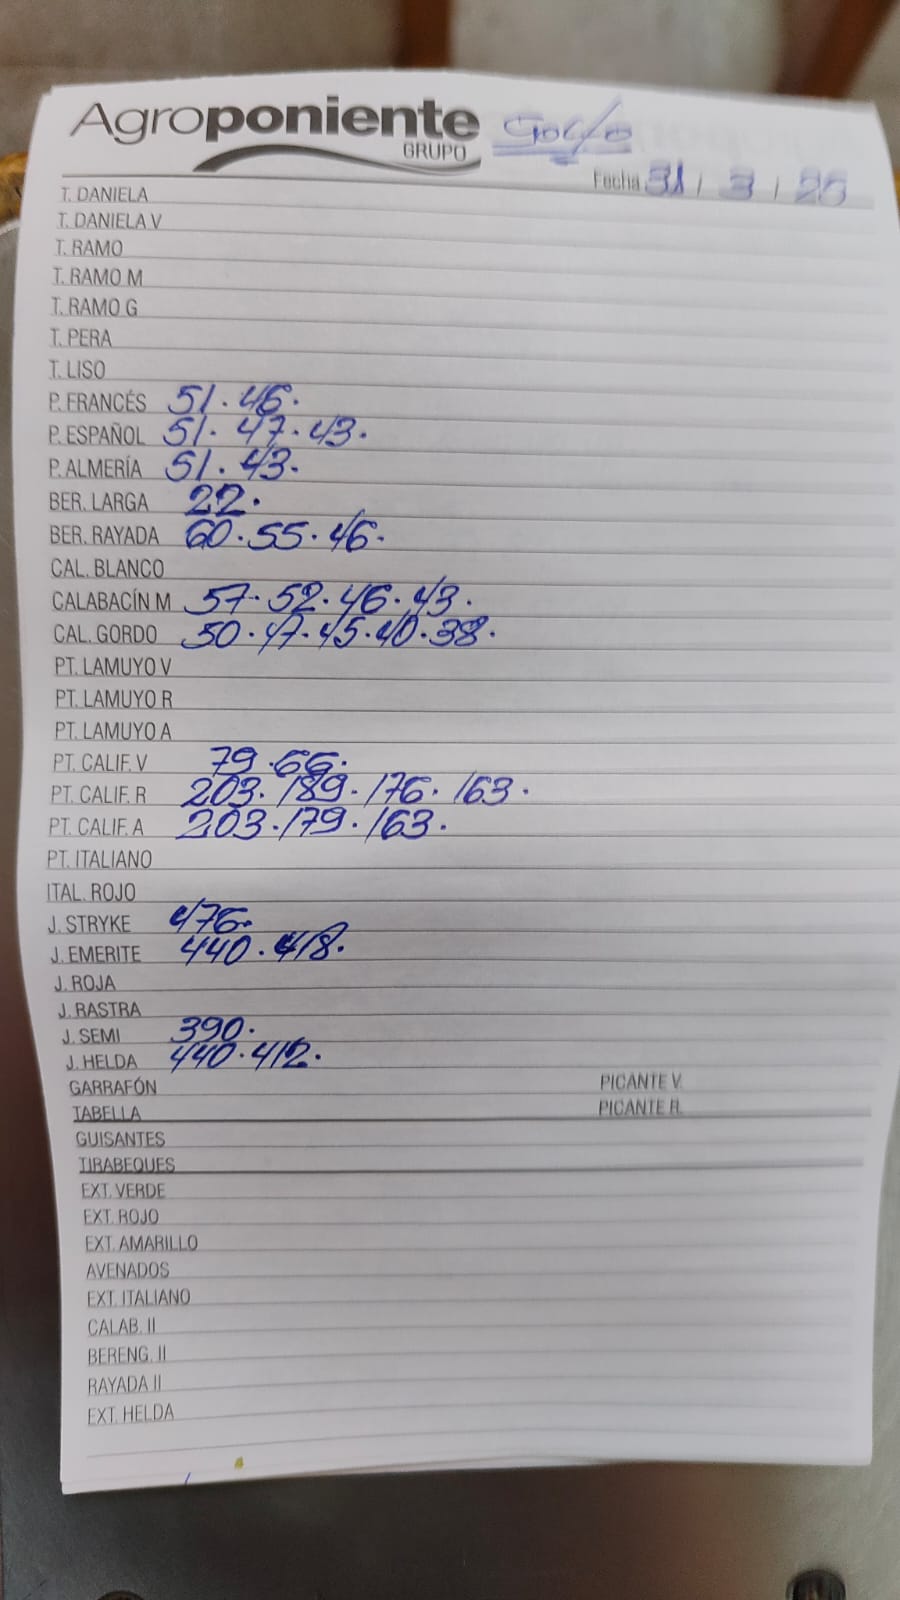 Agroponiente
GRUPO
Golfo
Fecha 31 / 3 / 25
T. DANIELA
T. DANIELA V
T. RAMO
T. RAMO M
T. RAMO G
T. PERA
T. LISO
P. FRANCÉS 51. 46.
P. ESPAÑOL 51. 47. 43.
P. ALMERÍA 51. 43.
BER. LARGA 22.
BER. RAYADA 60. 55. 46.
CAL. BLANCO
CALABACÍN M 57. 52. 46. 43.
CAL. GORDO 50. 47. 45. 40. 38.
PT. LAMUYO V
PT. LAMUYO R
PT. LAMUYO A
PT. CALIF. V 79. 66.
PT. CALIF. R 203. 189. 176. 163.
PT. CALIF. A 203. 179. 163.
PT. ITALIANO
ITAL. ROJO
J. STRYKE 476.
J. EMERITE 440. 418.
J. ROJA
J. RASTRA
J. SEMI 390.
J. HELDA 440. 412.
GARRAFÓN PICANTE V.
TABELLA PICANTE R.
GUISANTES
TIRABEQUES
EXT. VERDE
EXT. ROJO
EXT. AMARILLO
AVENADOS
EXT. ITALIANO
CALAB. II
BERENG. II
RAYADA II
EXT. HELDA